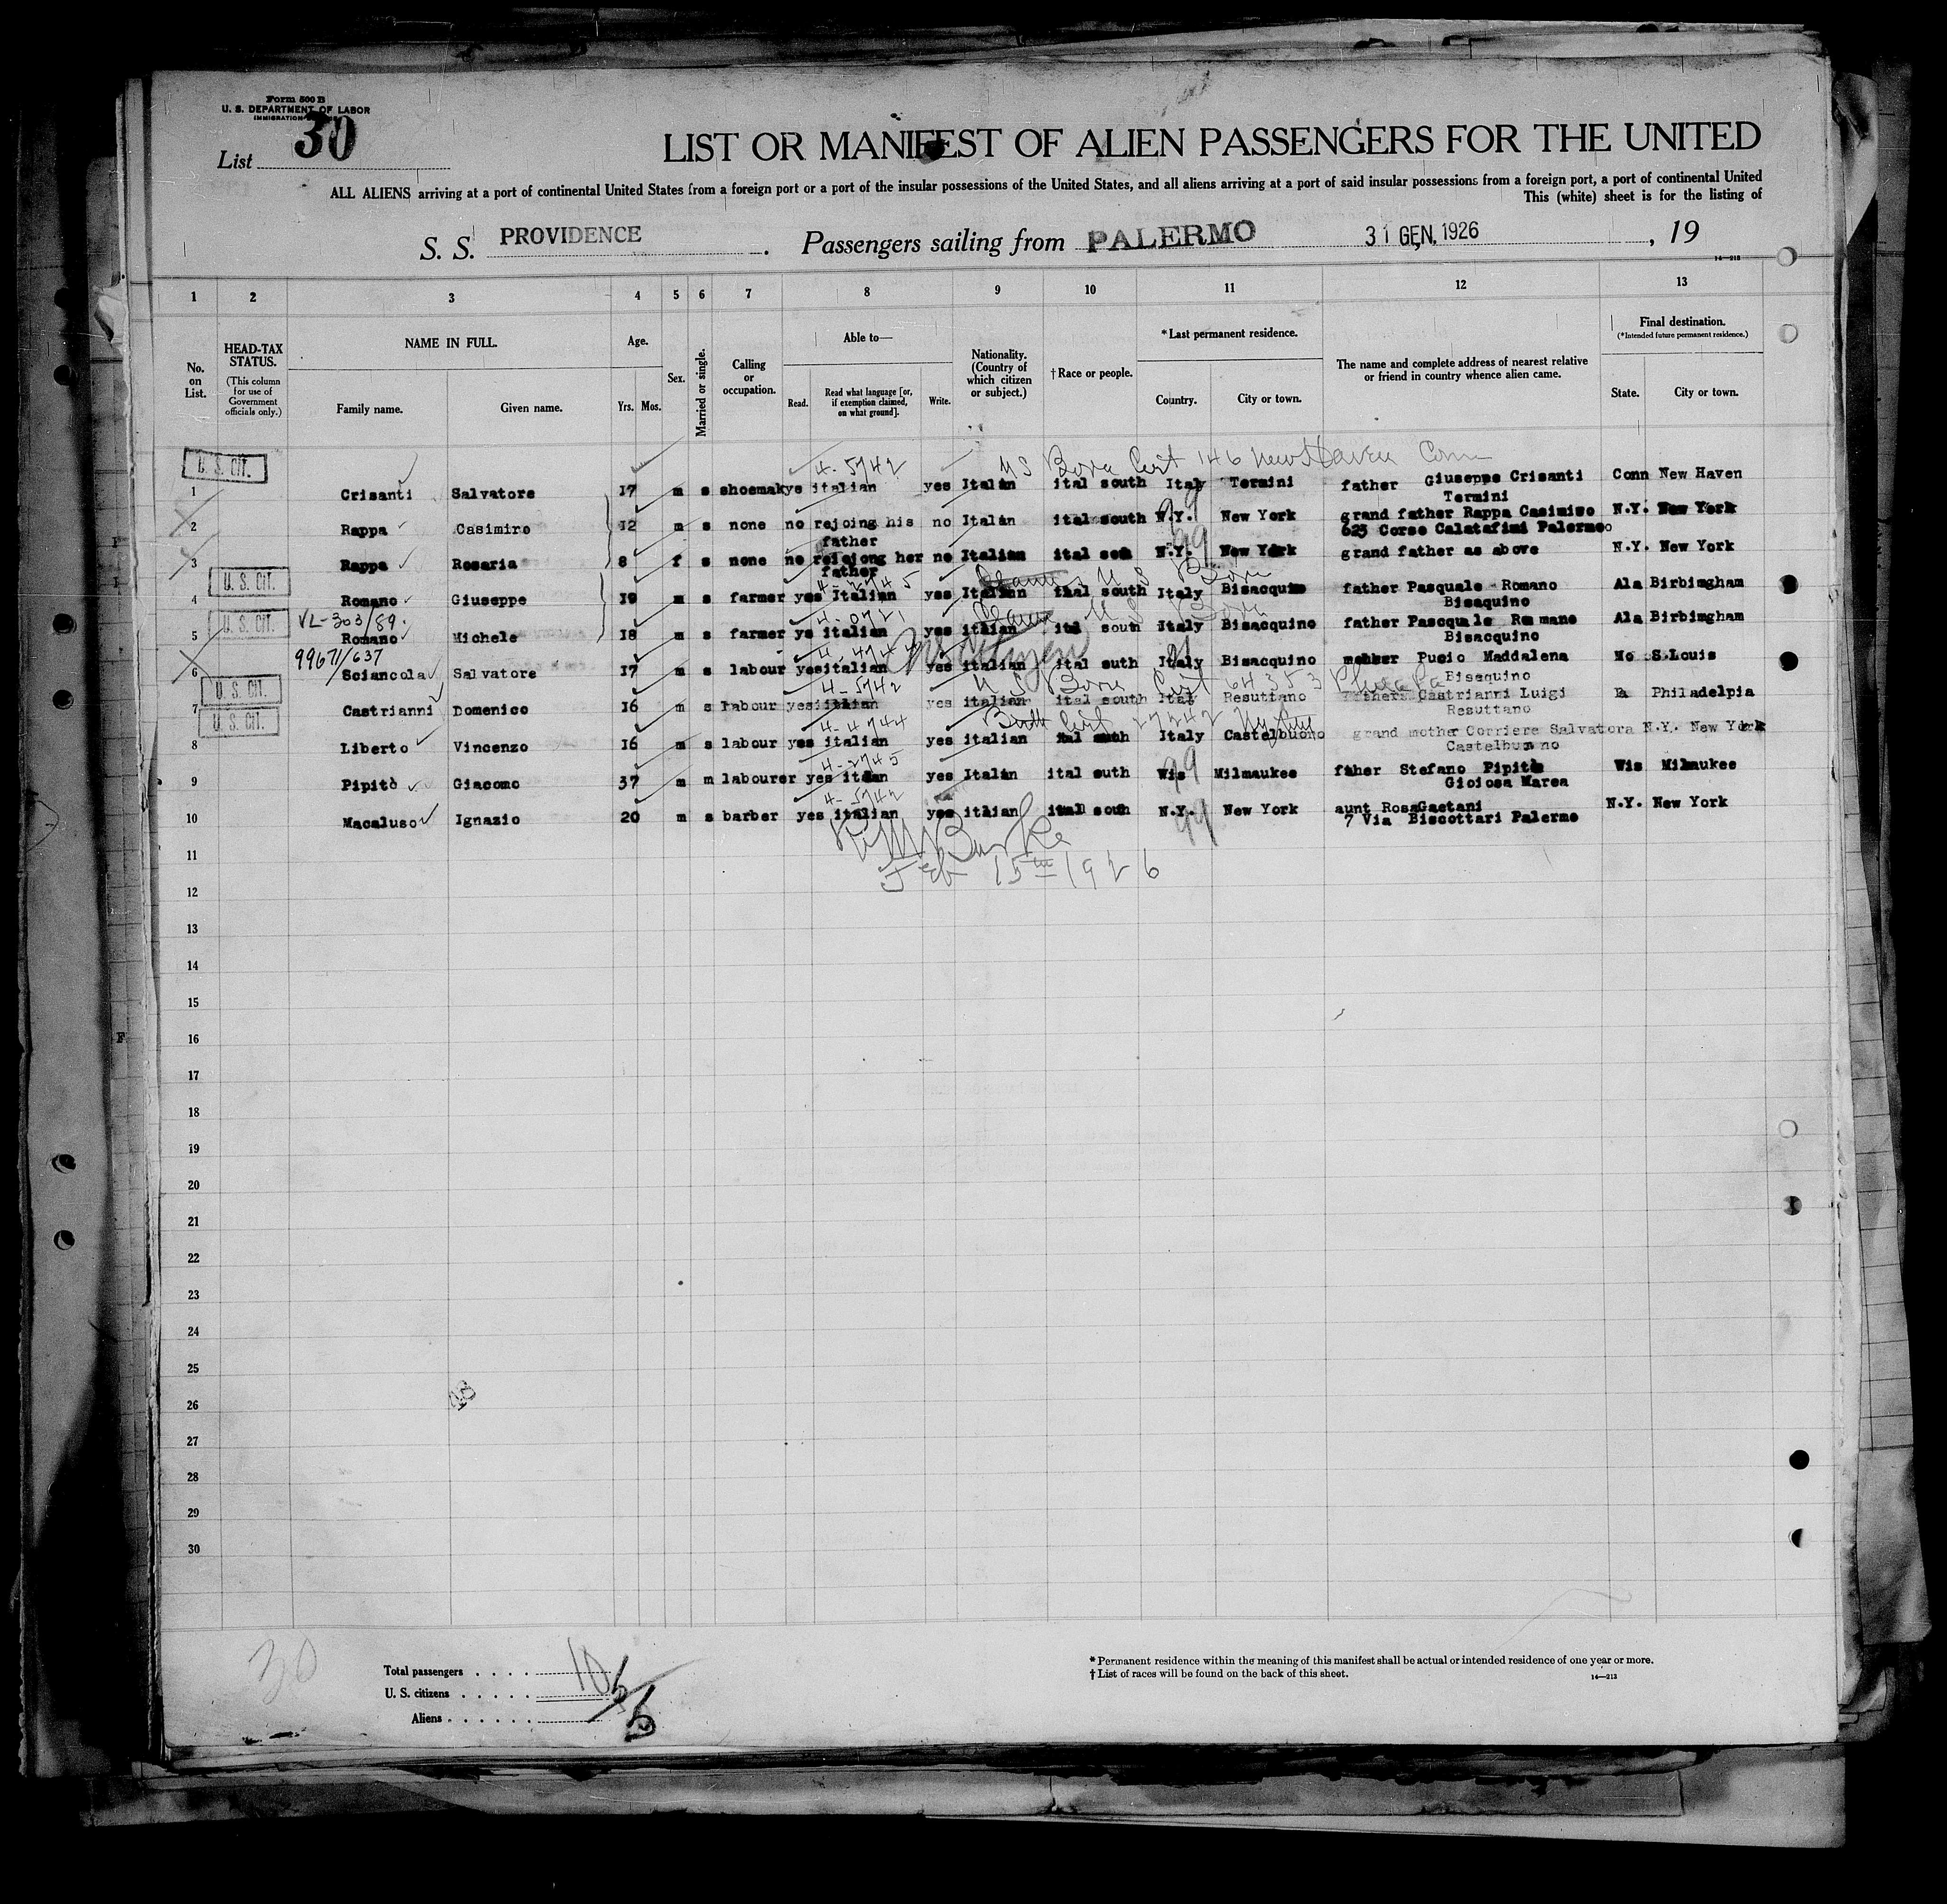 Form 500 B
U. S. DEPARTMENT OF LABOR
IMMIGRATION
List 30
LIST OR MANIFEST OF ALIEN PASSENGERS FOR THE UNITED
ALL ALIENS arriving at a port of continental United States from a foreign port or a port of the insular possessions of the United States, and all aliens arriving at a port of said insular possessions from a foreign port, a port of continental United
This (white) sheet is for the listing of
S. S. PROVIDENCE. Passengers sailing from PALERMO 31 GEN. 1926, 19
14—213
1 2 3 4 5 6 7 8 9 10 11 12 13
No. on List.
HEAD-TAX STATUS. (This column for use of Government officials only.)
NAME IN FULL. Family name. Given name.
Age. Yrs. Mos.
Sex.
Married or single.
Calling or occupation.
Able to— Read. Read what language [or, if exemption claimed, on what ground]. Write.
Nationality. (Country of which citizen or subject.)
†Race or people.
*Last permanent residence. Country. City or town.
The name and complete address of nearest relative or friend in country whence alien came.
Final destination. (*Intended future permanent residence.) State. City or town.
U. S. CIT. 4-5742 US Born Cert 146 New Haven Conn
1 Crisanti Salvatore 17 m s shoemakye italian yes Italin ital south Italy Termini father Giuseppe Crisanti Conn New Haven
Termini
2 Rappa Casimiro 12 m s none no rejoing his no Italin ital south N.Y. New York grand father Rappa Casimiro N.Y. New York
father 99 623 Corso Calatafimi Palermo
3 Rappa Rosaria 8 f s none no rejejong her no Italian ital sou N.Y. New York grand father as above N.Y. New York
father 99
U. S. CIT. 4-2745 U S Born
4 Romano Giuseppe 19 m s farmer yes Italian yes Italian ital south Italy Bisacquino father Pasquale Romano Ala Birbimgham
Bisaquino
U. S. CIT. VL-303/89. U S Born
5 Romano Michele 18 m s farmer ye italian yes italian ital south Italy Bisacquino father Pascquale Romano Ala Birbimgham
Bisacquino
99671/637 US Citizen
6 Sciancola Salvatore 17 m s labour yesitalian yes italian ital suth Italy Bisacquino mother Pucio Maddalena Mo S.Louis
Bisequino
U. S. CIT. 4-5742 U S Born Cert 64353 Phila Pa
7 Castrianni Domenico 16 m s labour yesitalian yes italian ital south Ital Resuttano father Castrianni Luigi Pa Philadelpia
Resuttano
U. S. CIT. 4-4744 Birth Cert 27242 Ny Ny
8 Liberto Vincenzo 16 m s labour yes italian yes italian ital south Italy Castelbuono grand mother Corriere Salvatora N.Y. New York
Castelbuono
4-2745
9 Pipitò Giacomo 37 m m labourer yes italian yes Italin ital suth Wis Milmaukee father Stefano Pipitò Wis Milmaukee
99 Gioiosa Marea
4-5742
10 Macaluso Ignazio 20 m s barber yes italian yes itlian ital south N.Y. New York aunt Rosa Gaetani N.Y. New York
99 7 Via Biscottari Palermo
Burke
Feb 15th 1926
11
12
13
14
15
16
17
18
19
20
21
22
23
24
25
26
27
28
29
30
30
Total passengers 10
U. S. citizens 5
Aliens 5
* Permanent residence within the meaning of this manifest shall be actual or intended residence of one year or more.
† List of races will be found on the back of this sheet.
14—213